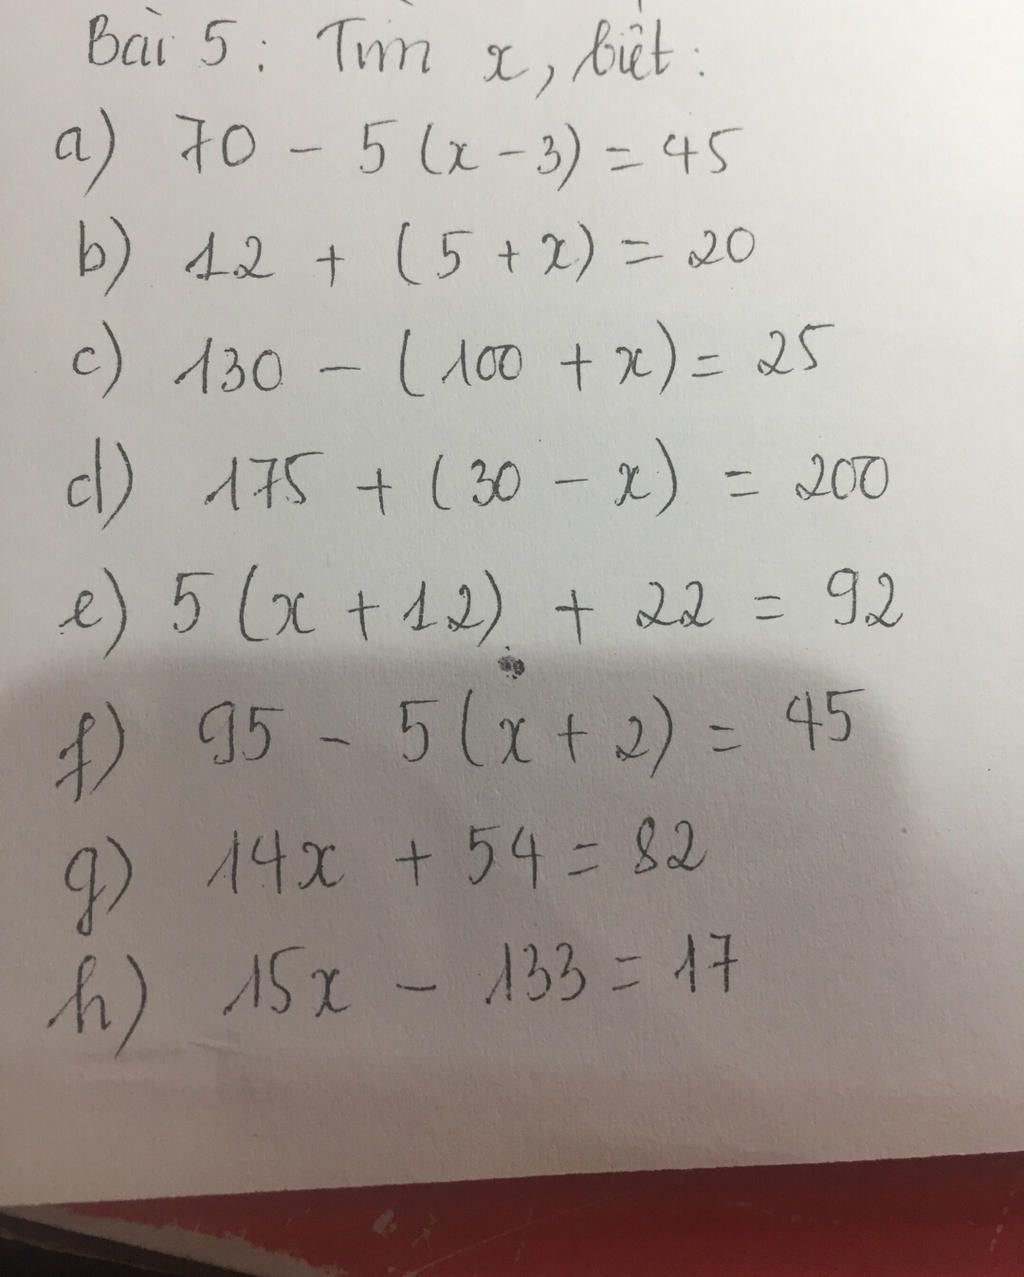 Bài 5 : Tìm x, biết :
a) 70 - 5 (x - 3) = 45
b) 12 + (5 + x) = 20
c) 130 - (100 + x) = 25
d) 175 + (30 - x) = 200
e) 5 (x + 12) + 22 = 92
f) 95 - 5 (x + 2) = 45
g) 14x + 54 = 82
h) 15x - 133 = 17